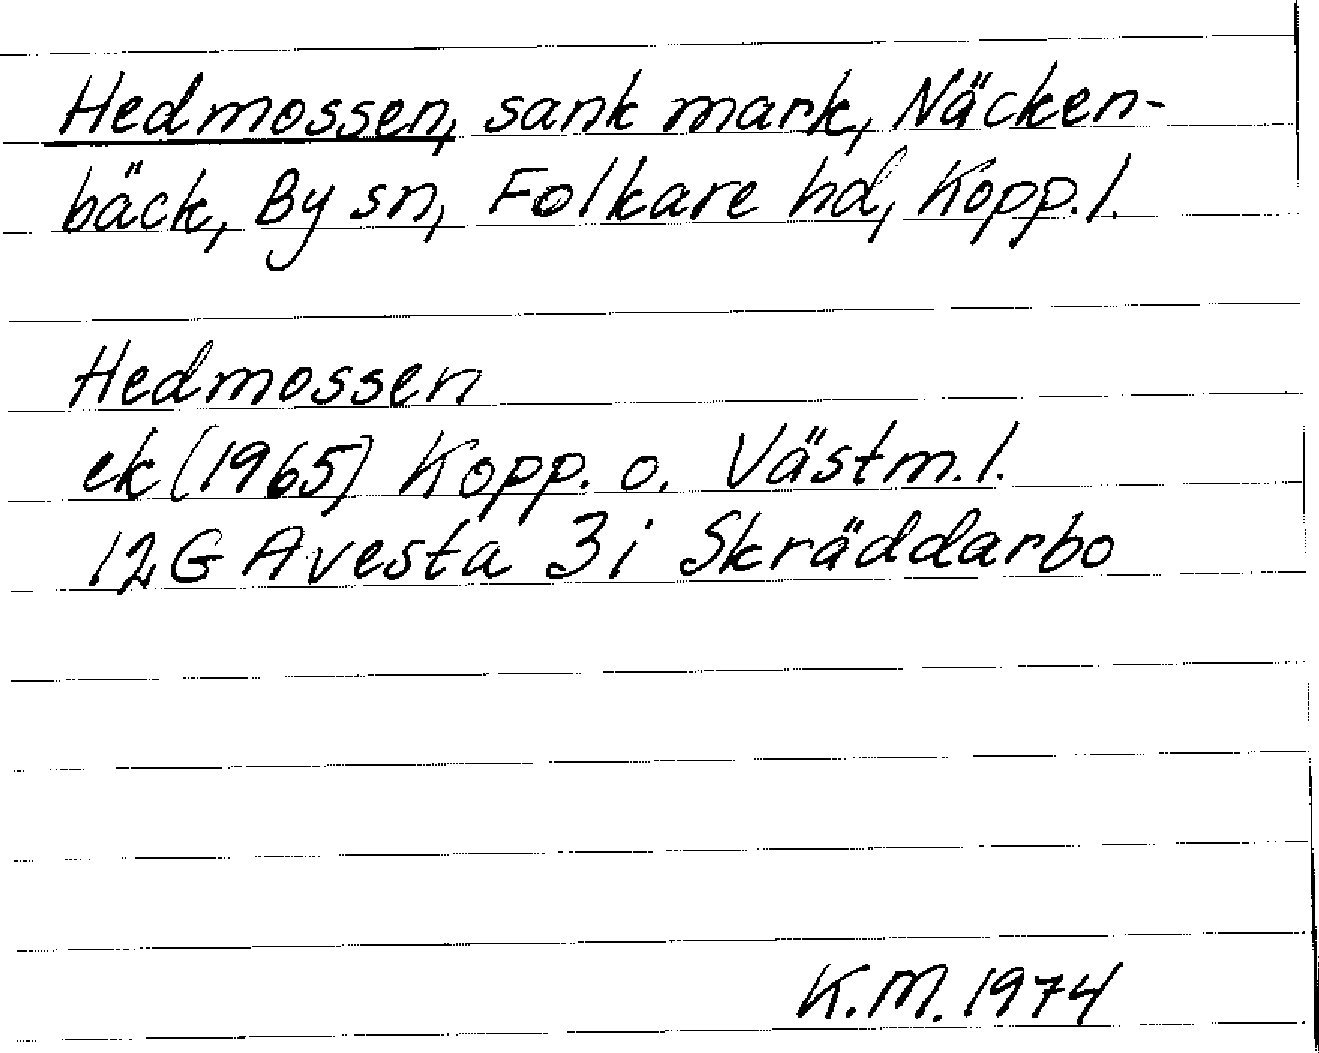 Hedmossen, sank mark, Näcken-
bäck, By sn, Folkare hd, Kopp. l.
Hedmossen
ek (1965) Kopp. o. Västm. l.
12G Avesta 3i Skräddarbo
K.M. 1974